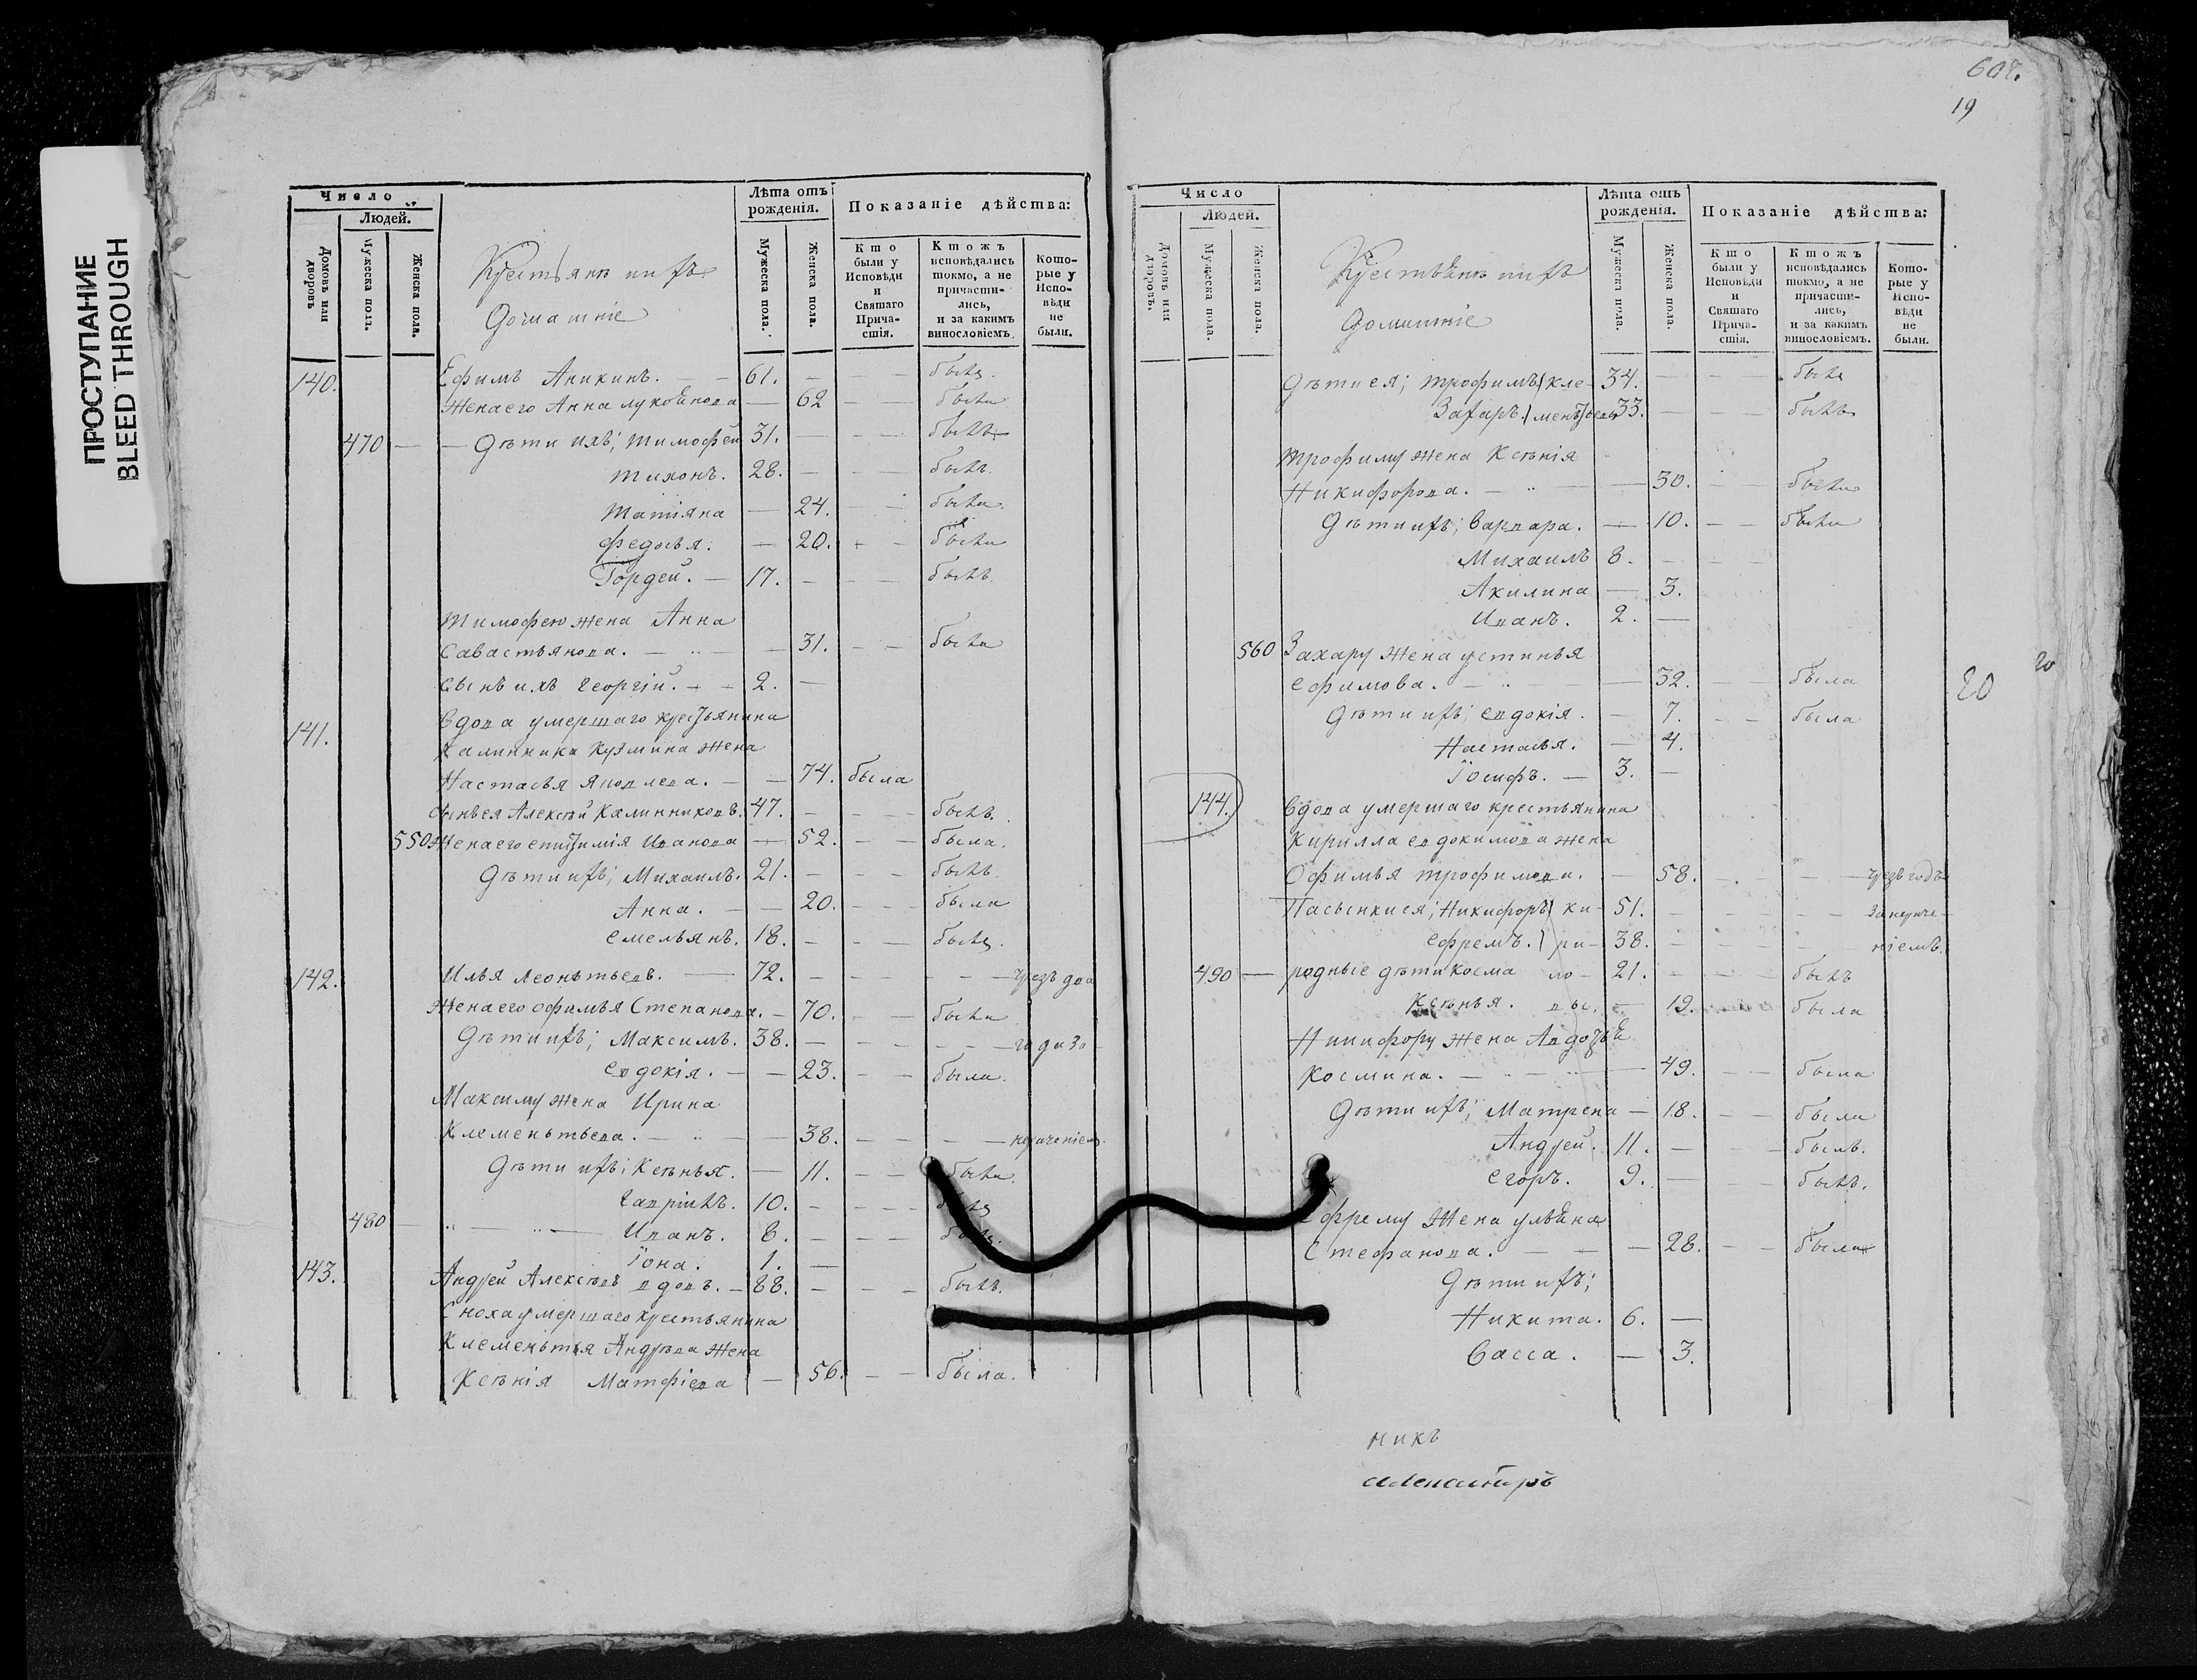 ПРОСТУПАНИЕ
BLEED THROUGH
Число
Людей.
Домовъ или дворовъ
Мужеска пола.
Женска пола.
Крестьянъ ихъ
Домашніе
Лѣта отъ рожденія.
Мужеска пола.
Женска пола.
Показаніе дѣйства:
Кто были у Исповѣди и Святаго Причастія.
Ктожъ исповѣдались токмо, а не причастились, и за какимъ винословіемъ.
Которые у Исповѣди не были.
140. Ефимъ Аникинъ. — — 61. — — — былъ.
Жена его Анна — 62 — — была
470 — — Дѣти ихъ; Тимофей 31. — — — былъ
Тихонъ. 28. — — — былъ.
Татіяна — 24. — — была.
Федосья. — 20. — — была
Гордей. — 17. — — — былъ.
Тимофею жена Анна
Савастьянова. — — — 31. — — была
Сынъ ихъ Георгій. — — 2. —
141. Вдова умершаго крестьянина
Калинника Кузмина жена
Настасья Яковлева. — — 74. была
Сынъ ея Алексѣй Калинниковъ. 47. — — — былъ.
550 Жена его Епистимія Иванова — 52. — — была.
Дѣти ихъ; Михаилъ. 21. — — — былъ.
Анна. — — 20. — — была
Емельянъ. 18. — — — былъ.
142. Илья Леонтьевъ. — 72. — — — — — чрезъ два
Жена его Офимья Степанова. — 70. — — была
Дѣти ихъ; Максимъ. 38. — — — — — года за
Евдокія. — — 23. — — была.
Максиму жена Ирина
Клементьева. — — — 38. — — — — нерченіемъ.
Дѣти ихъ; Ксѣнья. — 11. — — была.
Гавріилъ. 10. — — — былъ
480 — — — Иванъ. 8. — — — былъ.
Іона. 1. —
143. Андрей Алексѣевъ вдовъ. — 88. — — — былъ.
Сноха умершаго крестьянина
Клементья Андрѣева жена
Ксѣнія Матфіева — 56. — — была.
608.
19
Число
Людей.
Домовъ или дворовъ.
Мужеска пола.
Женска пола.
Крестьянъ ихъ
Домашніе
Лѣта отъ рожденія.
Мужеска пола.
Женска пола.
Показаніе дѣйства:
Кто были у Исповѣди и Святаго Причастія.
Ктожъ исповѣдались токмо, а не причастились, и за какимъ винословіемъ.
Которые у Исповѣди не были.
Дѣти ея; Трофимъ } Кле- 34. — — — былъ
Захаръ. } ментьевы 33. — — — былъ
Трофиму жена Ксѣнія
Никифорова. — — — 30. — — была
Дѣти ихъ; Варвара. — 10. — — была
Михаилъ 8. — — —
Акилина — 3.
Иванъ. 2. —
560 Захару жена Устинья
Ефимова. — — — 32. — — была
Дѣти ихъ; Евдокія. — 7. — — была
Настасья. — 4.
Іосифъ. — 3. —
20
20
144. Вдова умершаго крестьянина
Кирилла Евдокимова жена
Офимья Трофимова. — 58. — — — чрезъ годъ
Пасынки ея; Никифоръ } Ки- 51. — — — — за нерче-
Ефремъ. } ри- 38. — — — — ніемъ.
490 — родные дѣти Косма ло- 21. — — — былъ
Ксѣнья. вы. — 19. — — была
Никифору жена Авдотья
Космина. — — — 49. — — была
Дѣти ихъ; Матрена — 18. — — была
Андрей. 11. — — — былъ.
Егоръ. 9. — — — былъ.
Ефрему жена Ульяна
Стефанова. — — — 28. — — была
Дѣти ихъ;
Никита. 6. —
Васса. — 3.
никъ